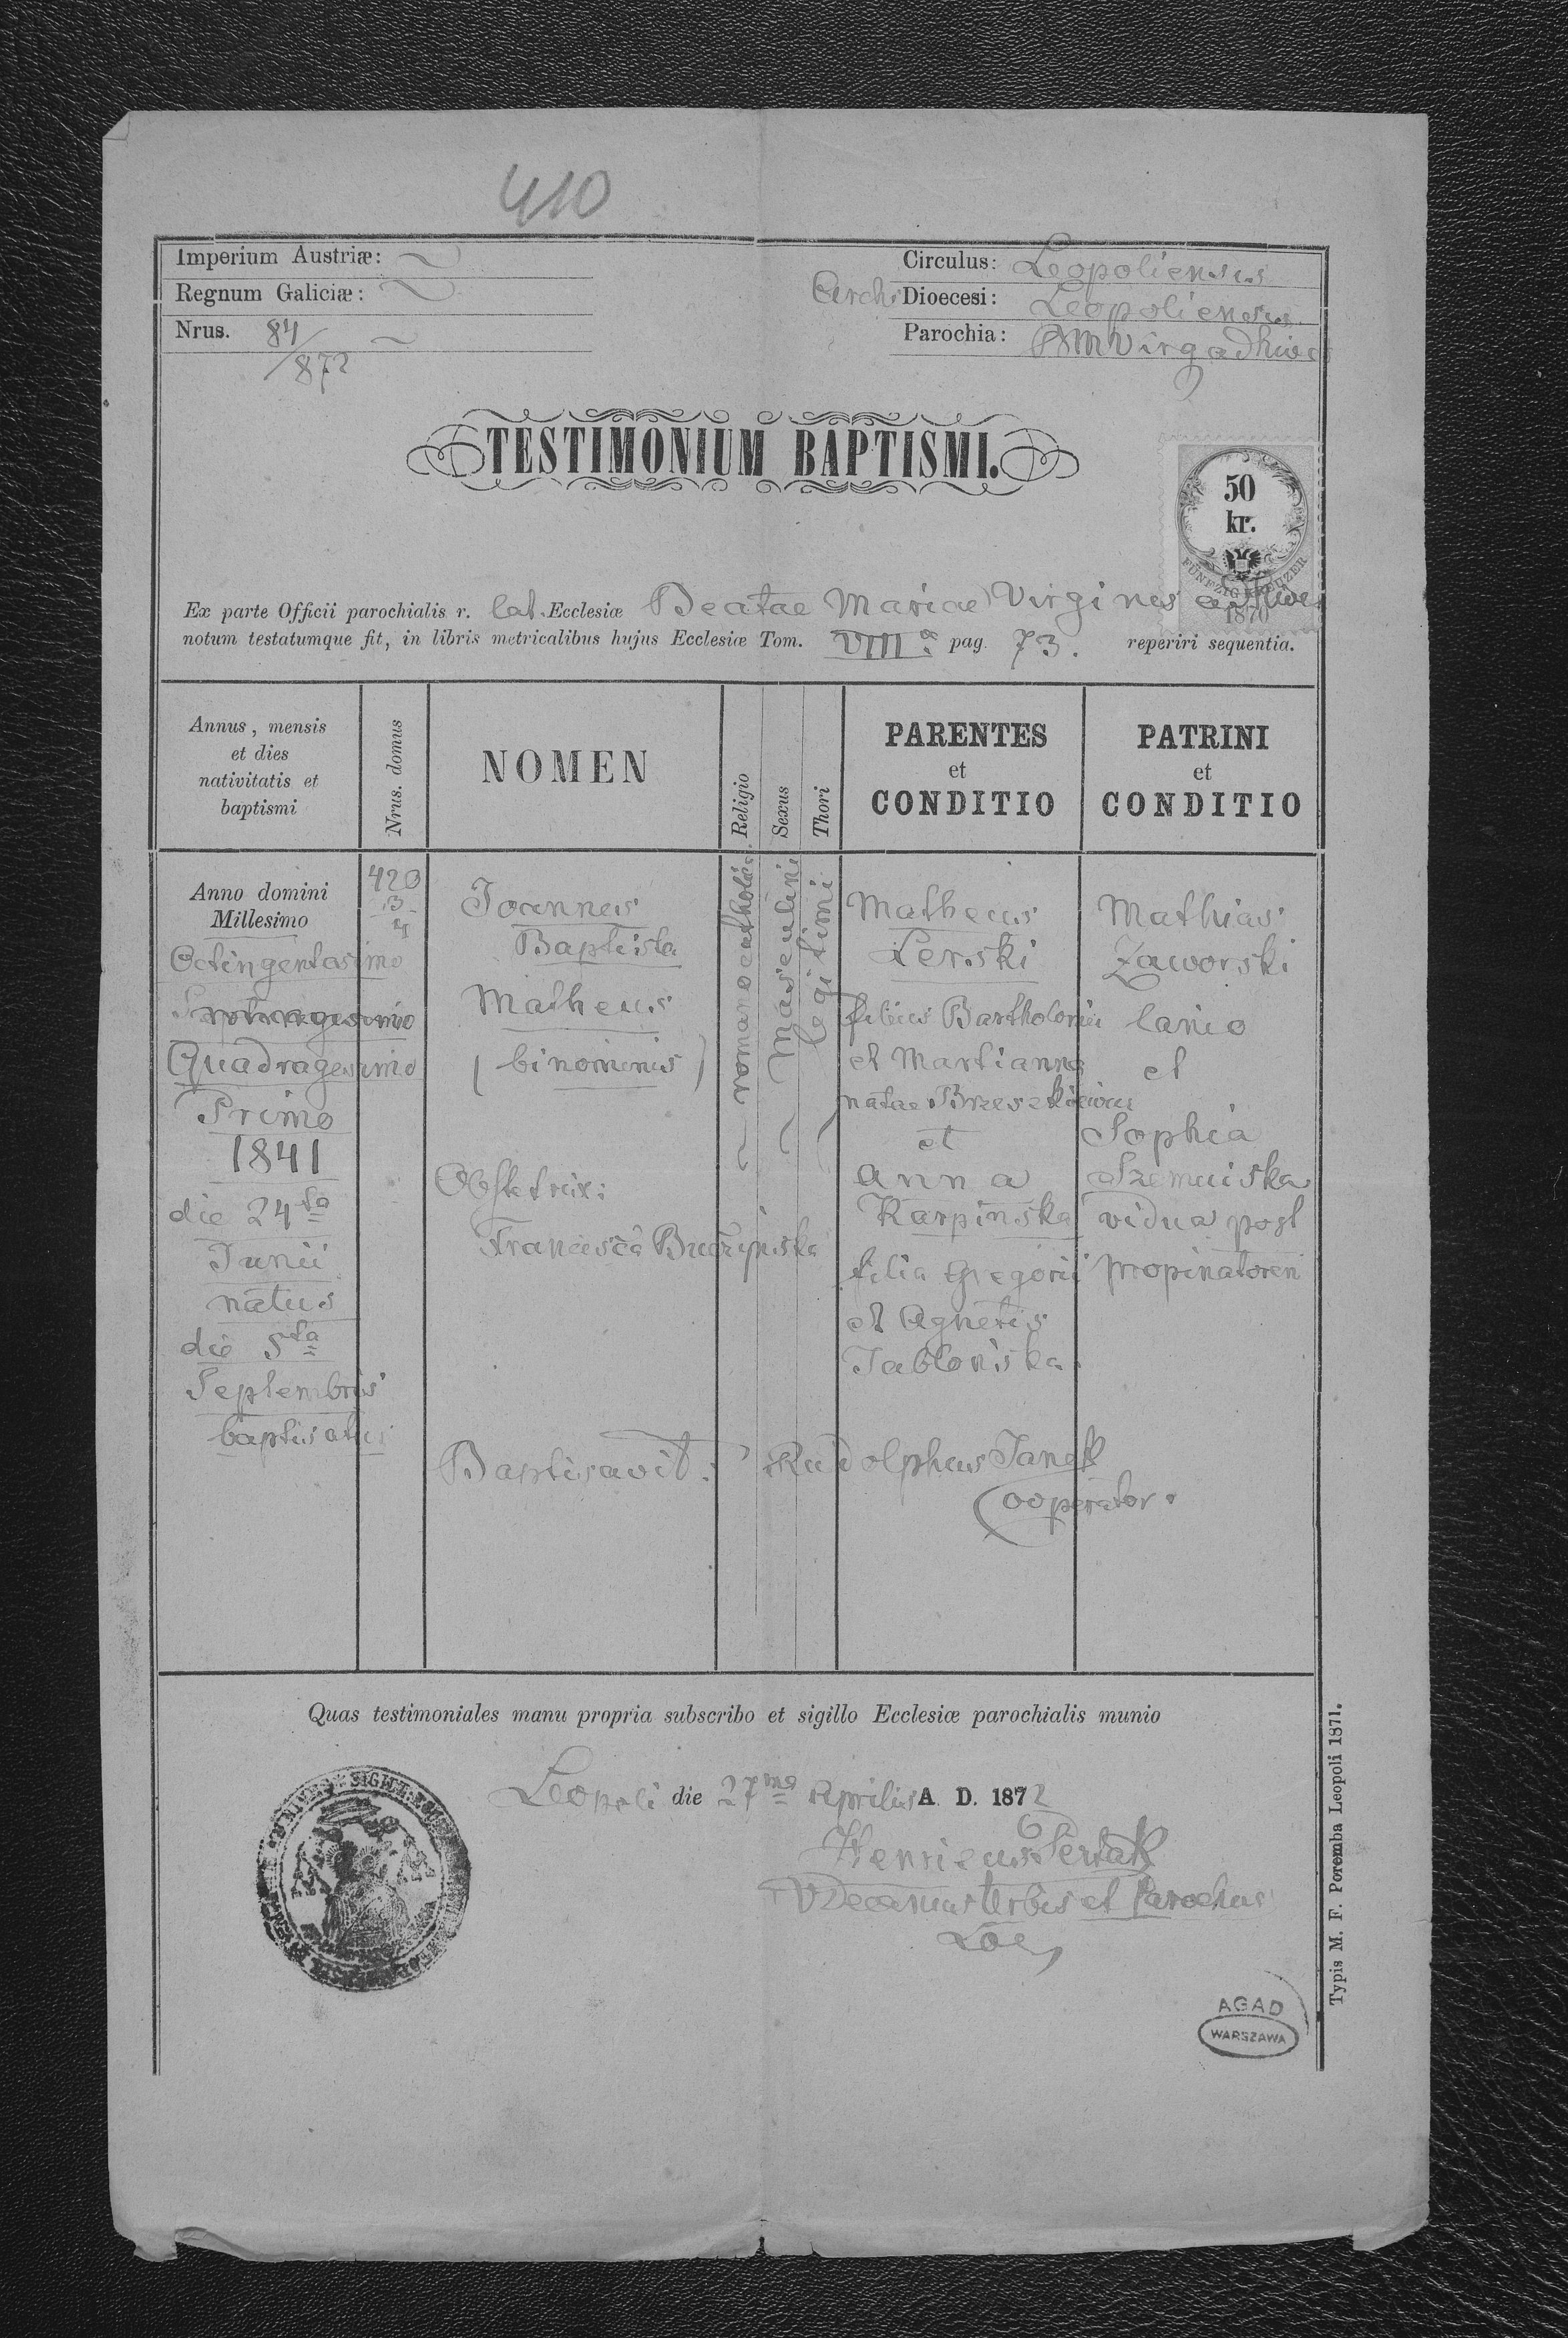 410
Imperium Austriæ:
Regnum Galiciæ:
Nrus. 84/872
Circulus: Leopoliensis
Archi Dioecesi: Leopoliensis
Parochia: BMVirg ad Nives
TESTIMONIUM BAPTISMI.
50
kr.
FÜNFZIG KREUZER
1870
Ex parte Officii parochialis r. lat. Ecclesiæ Beatae Mariae Virginis ad Nives
notum testatumque fit, in libris metricalibus hujus Ecclesiæ Tom. VIIIª pag. 73. reperiri sequentia.
Annus, mensis
et dies
nativitatis et
baptismi
Nrus. domus
NOMEN
Religio
Sexus
Thori
PARENTES
et
CONDITIO
PATRINI
et
CONDITIO
Anno domini
Millesimo
Octingentesimo
Septuagesimo
Quadragesimo
Primo
1841
die 24ta
Junii
natus
die 5ta
Septembris
baptisatus
420
Joannes
Baptista
Matheus
(binominis)
Obstetrix:
Francisca Buczyńska
romano catholica
Masculini
legitimi
Matheus
Lerski
filius Bartholomei
et Martianna
natae
et
Anna
Karpinska
filia Gregorii
et Agnetis
Jablonska.
Mathias
Zaworski
lanio
et
Sophia
vidua post
propinatorem
Baptisavit: Rudolpheus Janek
Cooperator.
Quas testimoniales manu propria subscribo et sigillo Ecclesiæ parochialis munio
Leopoli die 27ma Aprilis A. D. 1872
Henricus
VDecanus Urbis et Parochus
Typis M. F. Poremba Leopoli 1871.
AGAD
WARSZAWA